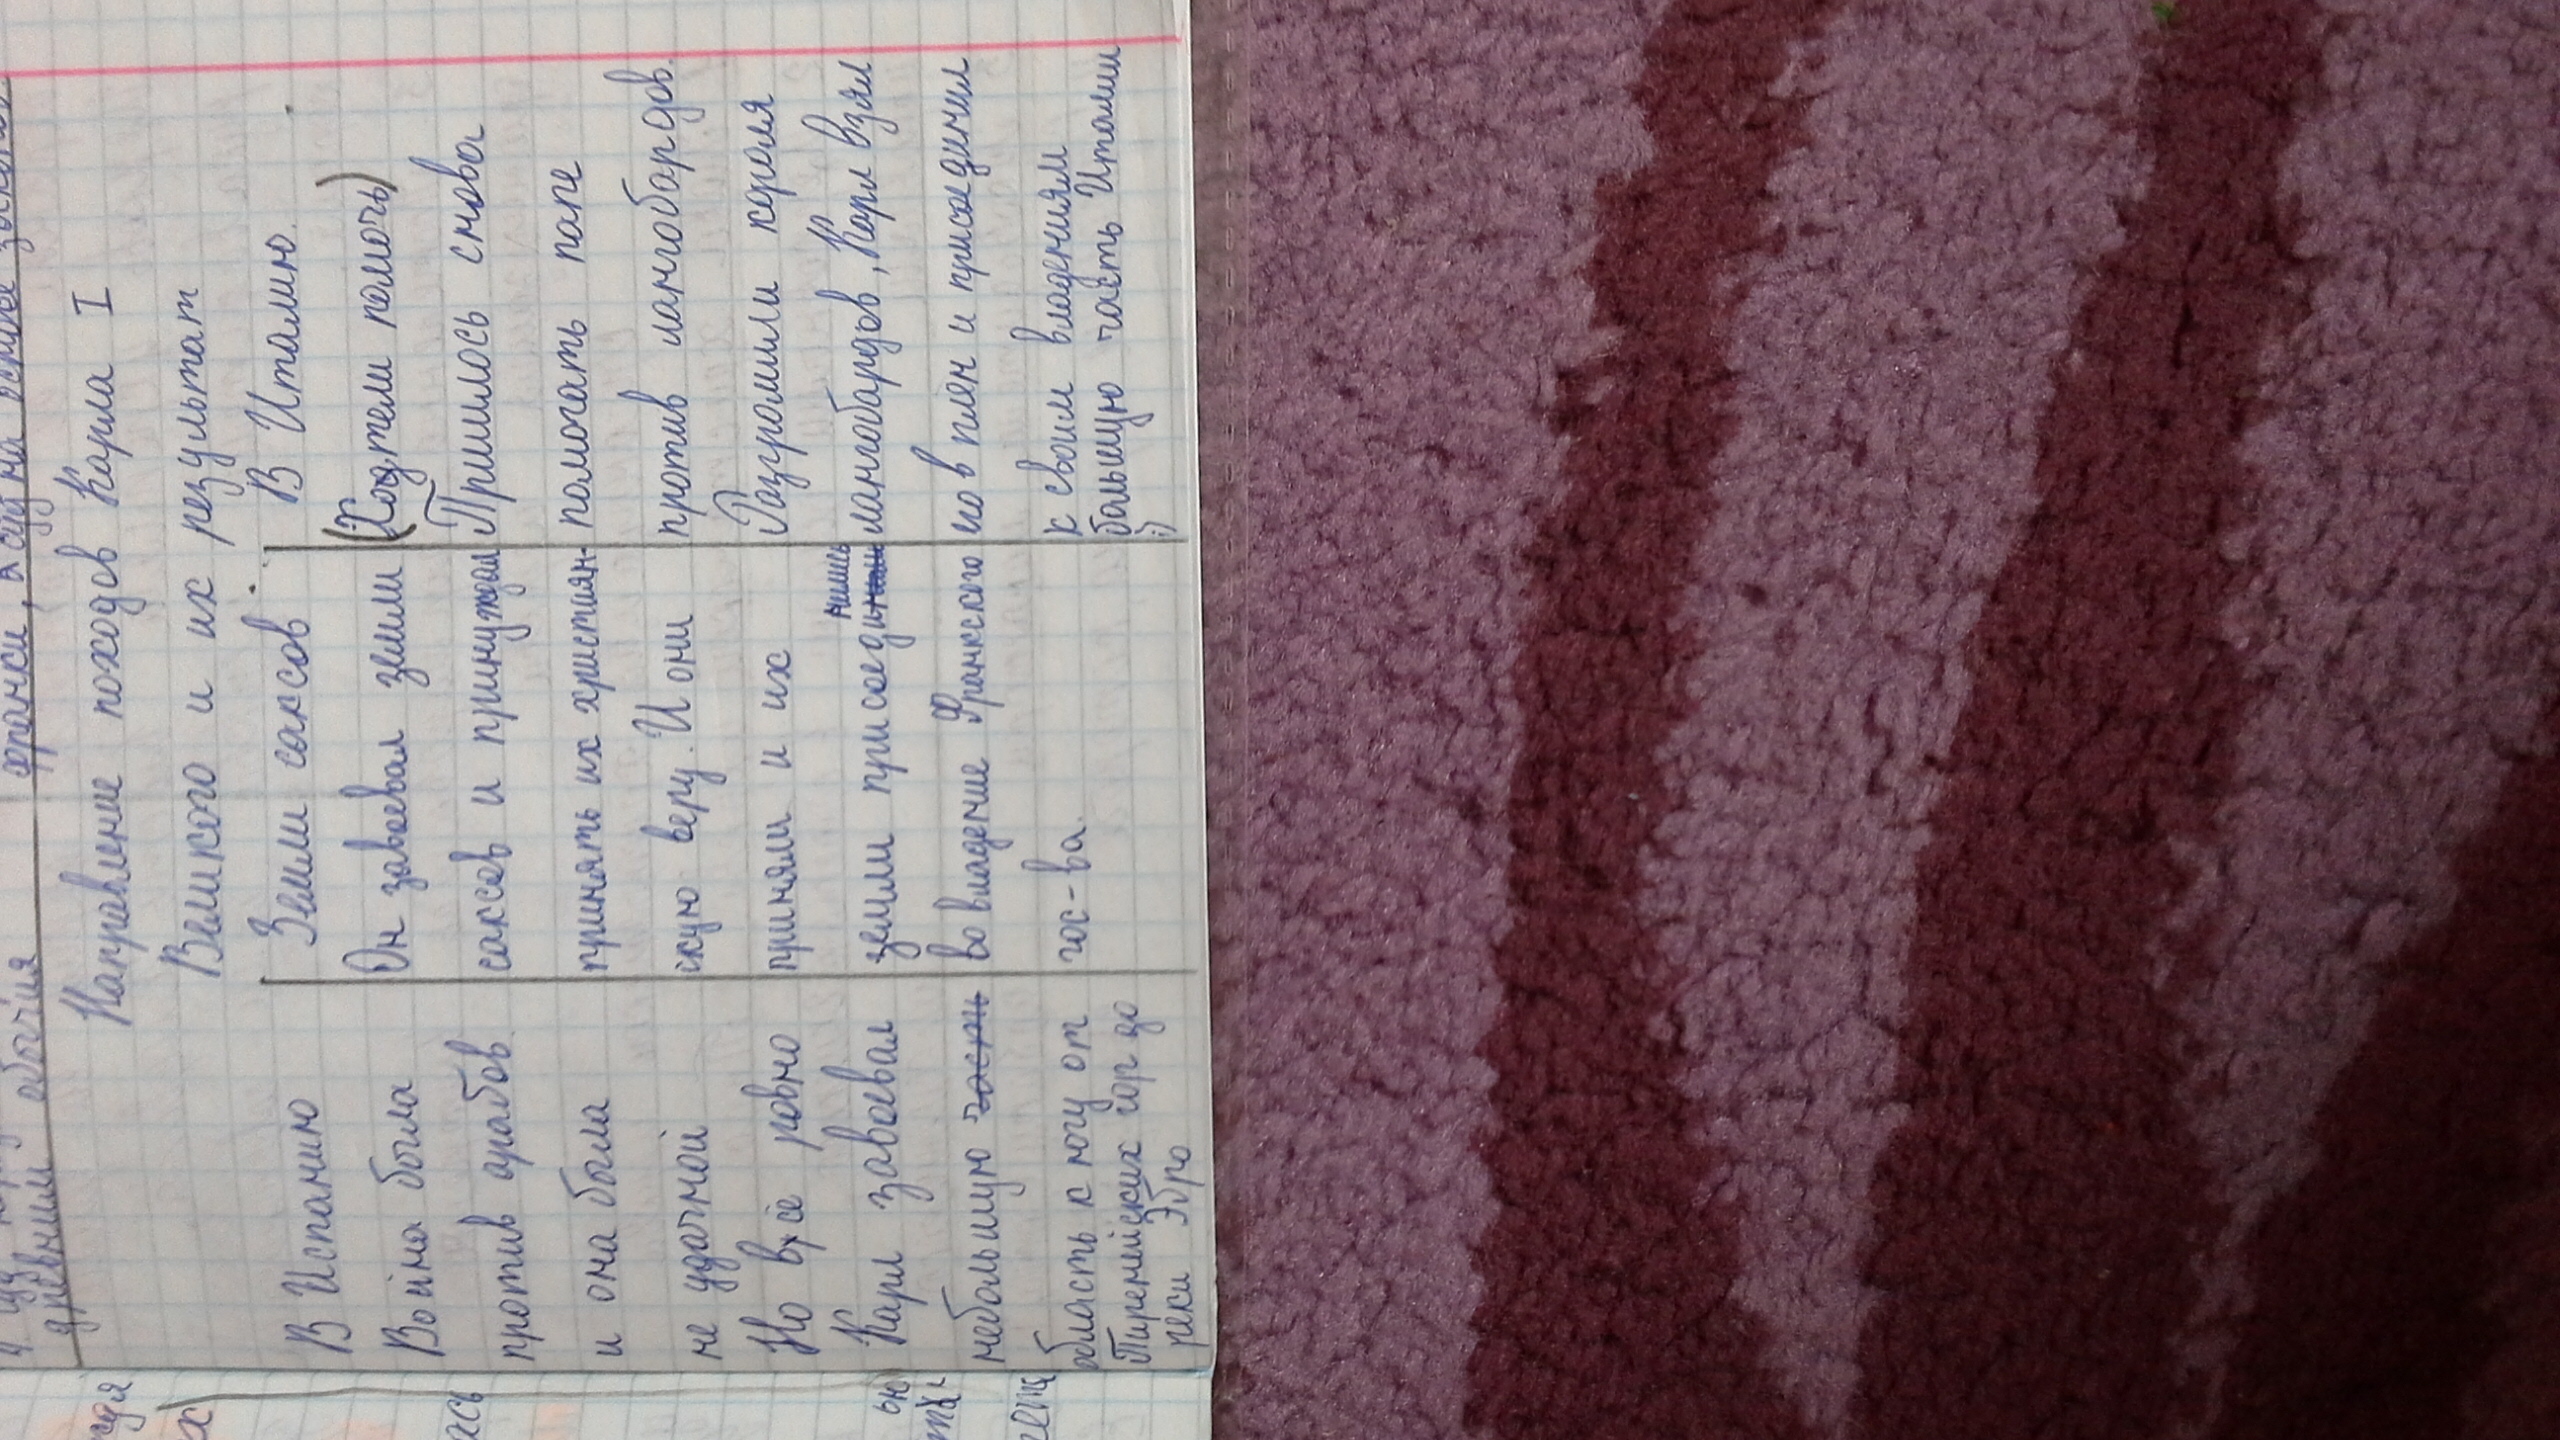 франки, а суд на основе законов
древним обычия
Направление походов Карла I
Великого и их результат
В Испанию
Война была
против арабов
и она была
не удачной
Но всё равно
Карл завоевал
небольшую часть
область к югу от
Пиренейских гор до
реки Эбро
Земли саксов
Он завоевал земли
саксов и принуждал
принять их христиан-
скую веру. И они
приняли и их
земли присоединили
во владение Франкского
гос-ва.
В Италию.
(Хотели помочь)
Пришлось снова
помогать папе
против лангобардов.
Разгромили короля
лангобардов, Карл взял
ков плен и присоединил
к своим владениям
большую часть Италии